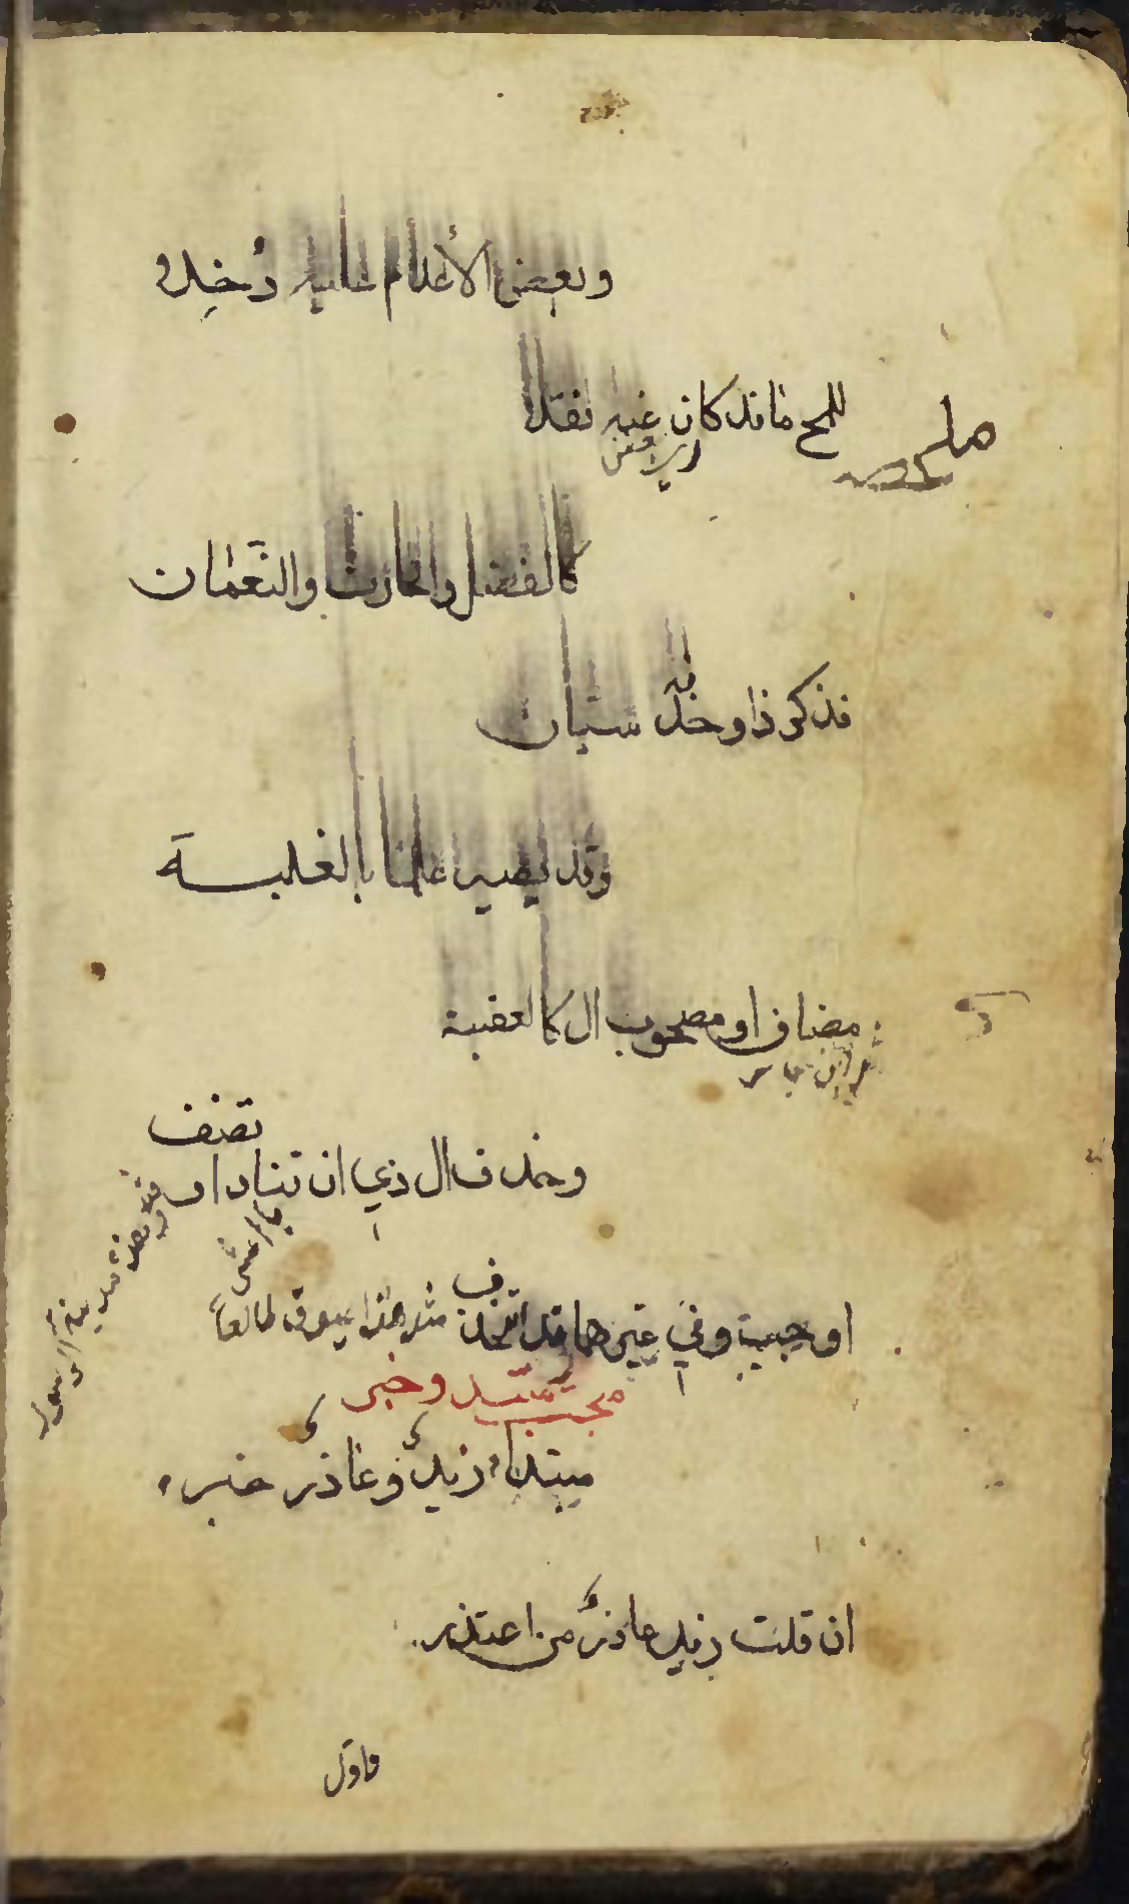 وبعض الأعلام عليه دُخِلا
للمح ما قد كان عنه نقلا
كالفضل والحارث والنعمان
فذكر ذا وحذفه سيان
وقد يصير علما بالغلبة
مضاف او مصحوب ال كالعقبة
وحذف ال ذي ان تناد او تضف
اوجب وفي غيرهما قد تنحذف
مبتدأ وخبر
مبتدأ زيدٌ وعاذر خبر
ان قلت زيد عاذرٌ من اعتذر
واول